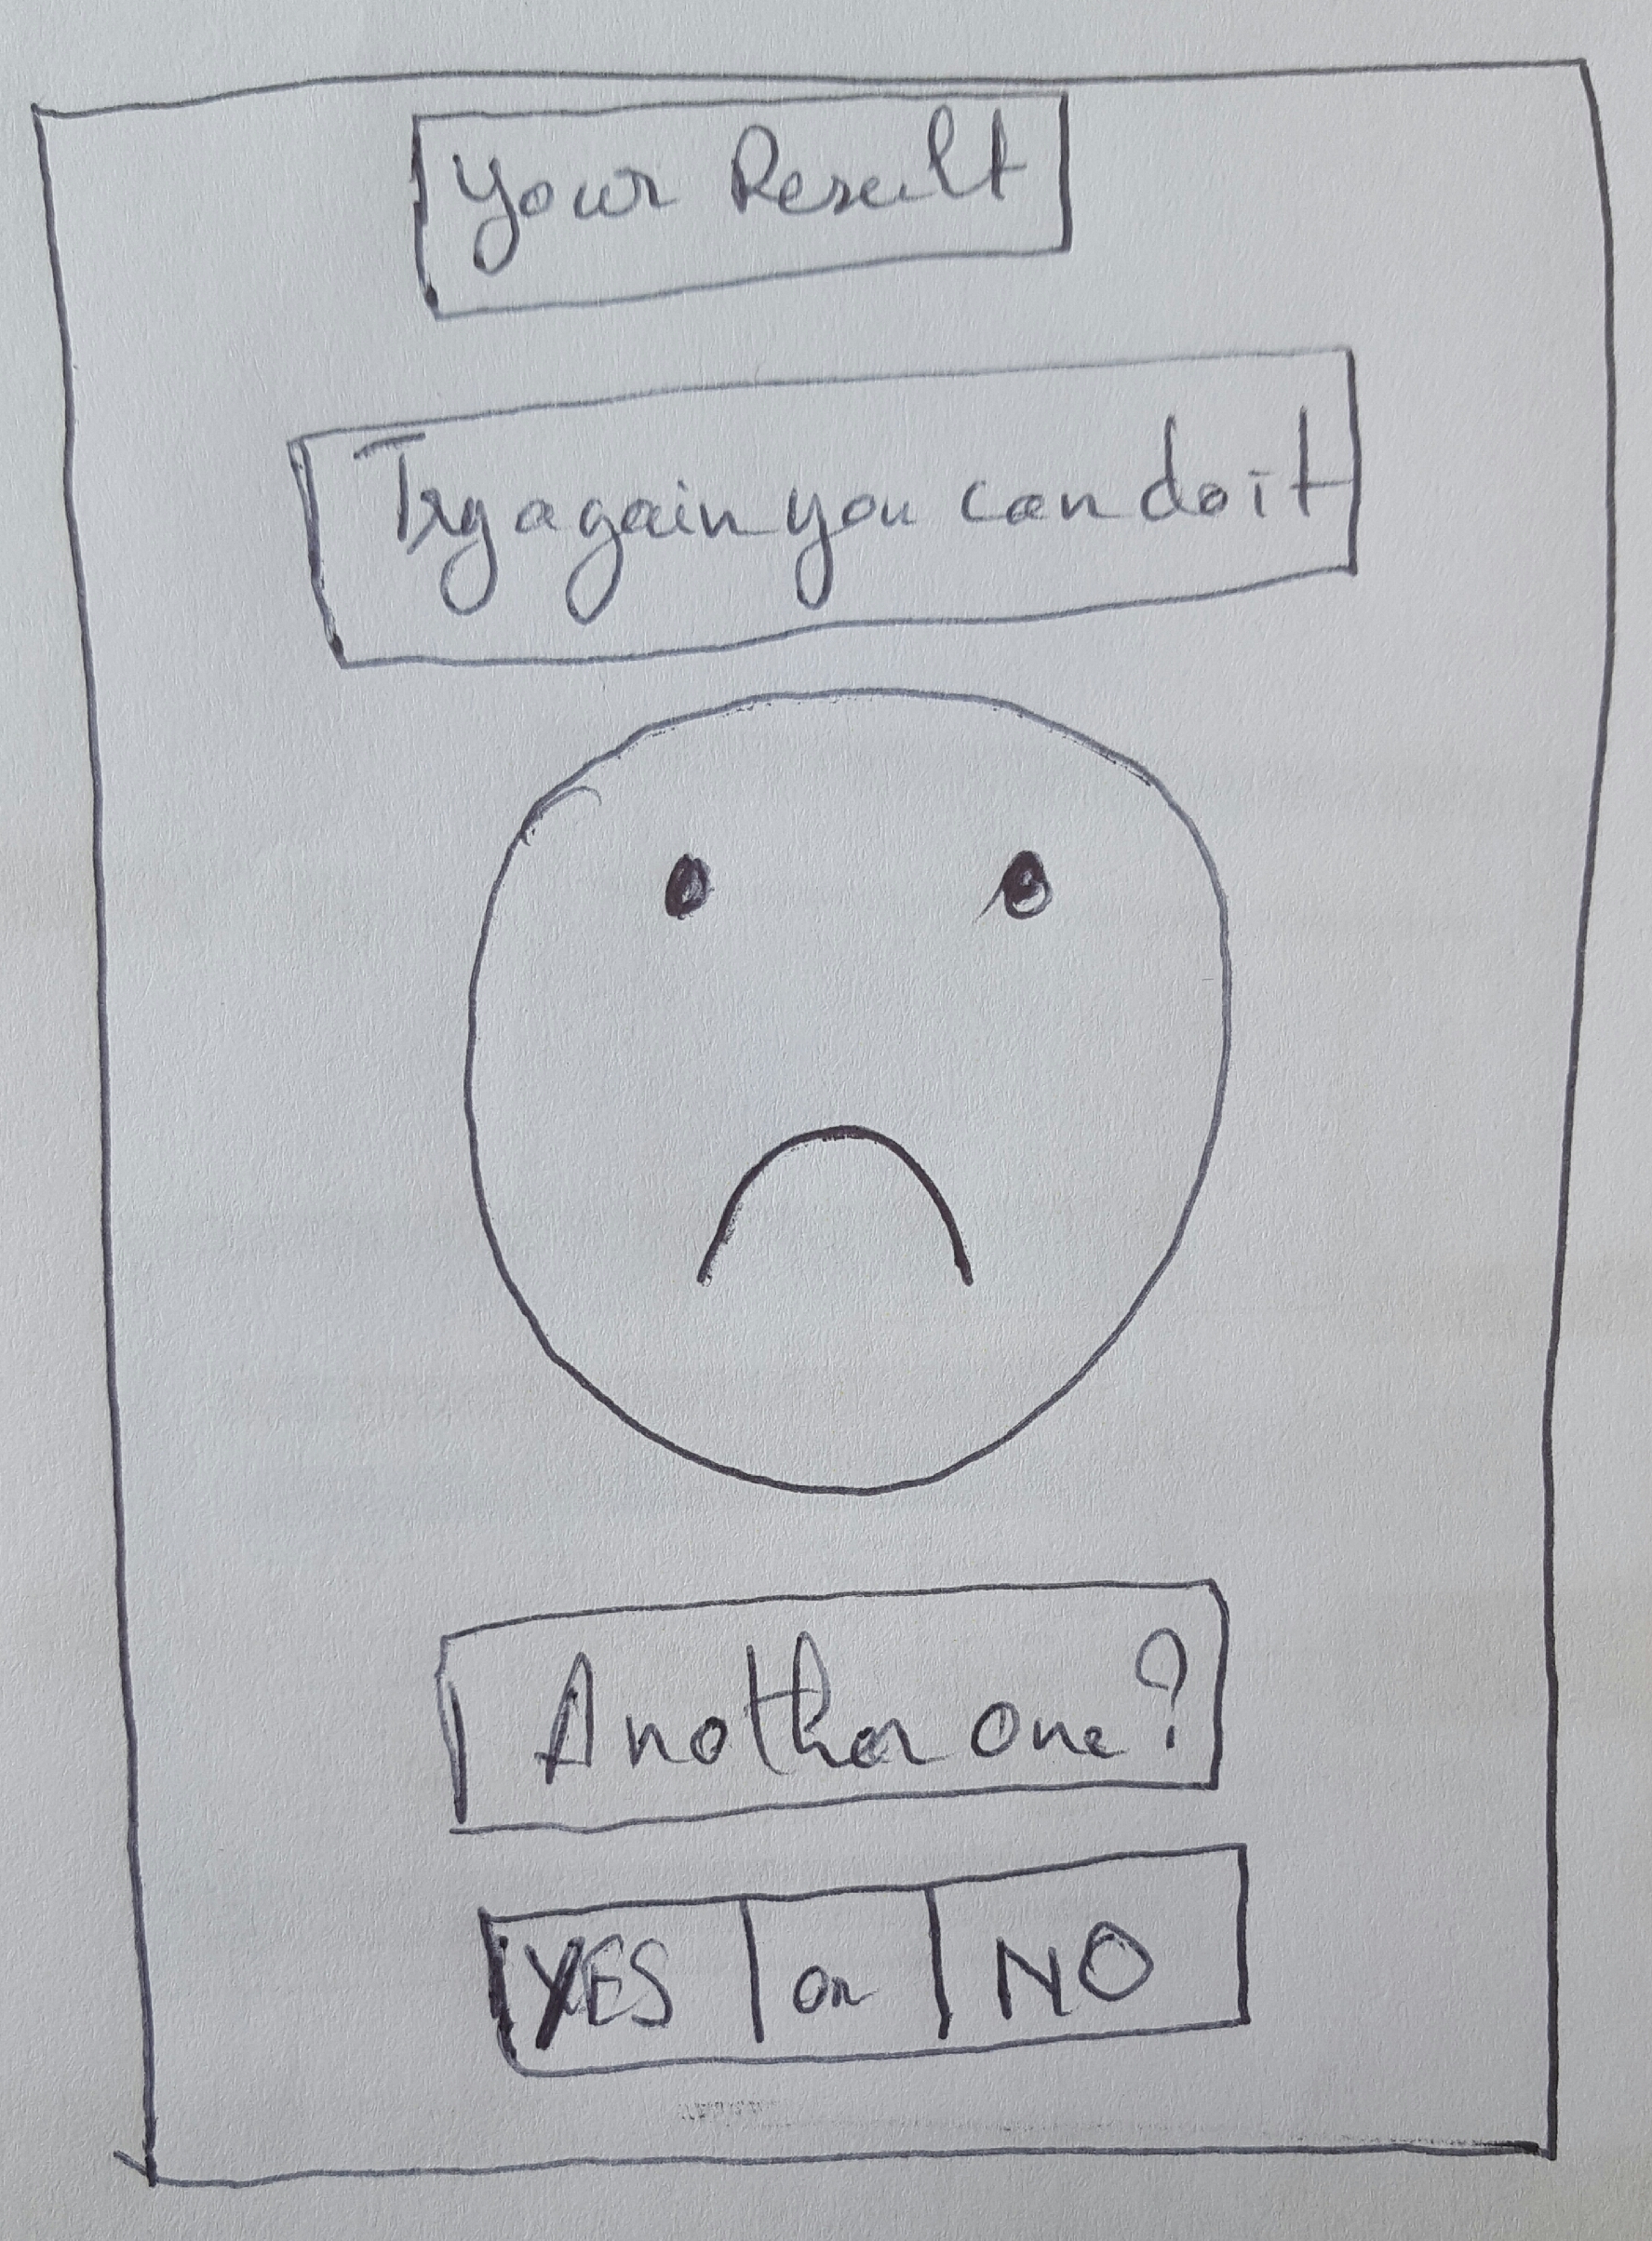 Your Result
Try again you can do it
Another one?
YES or NO